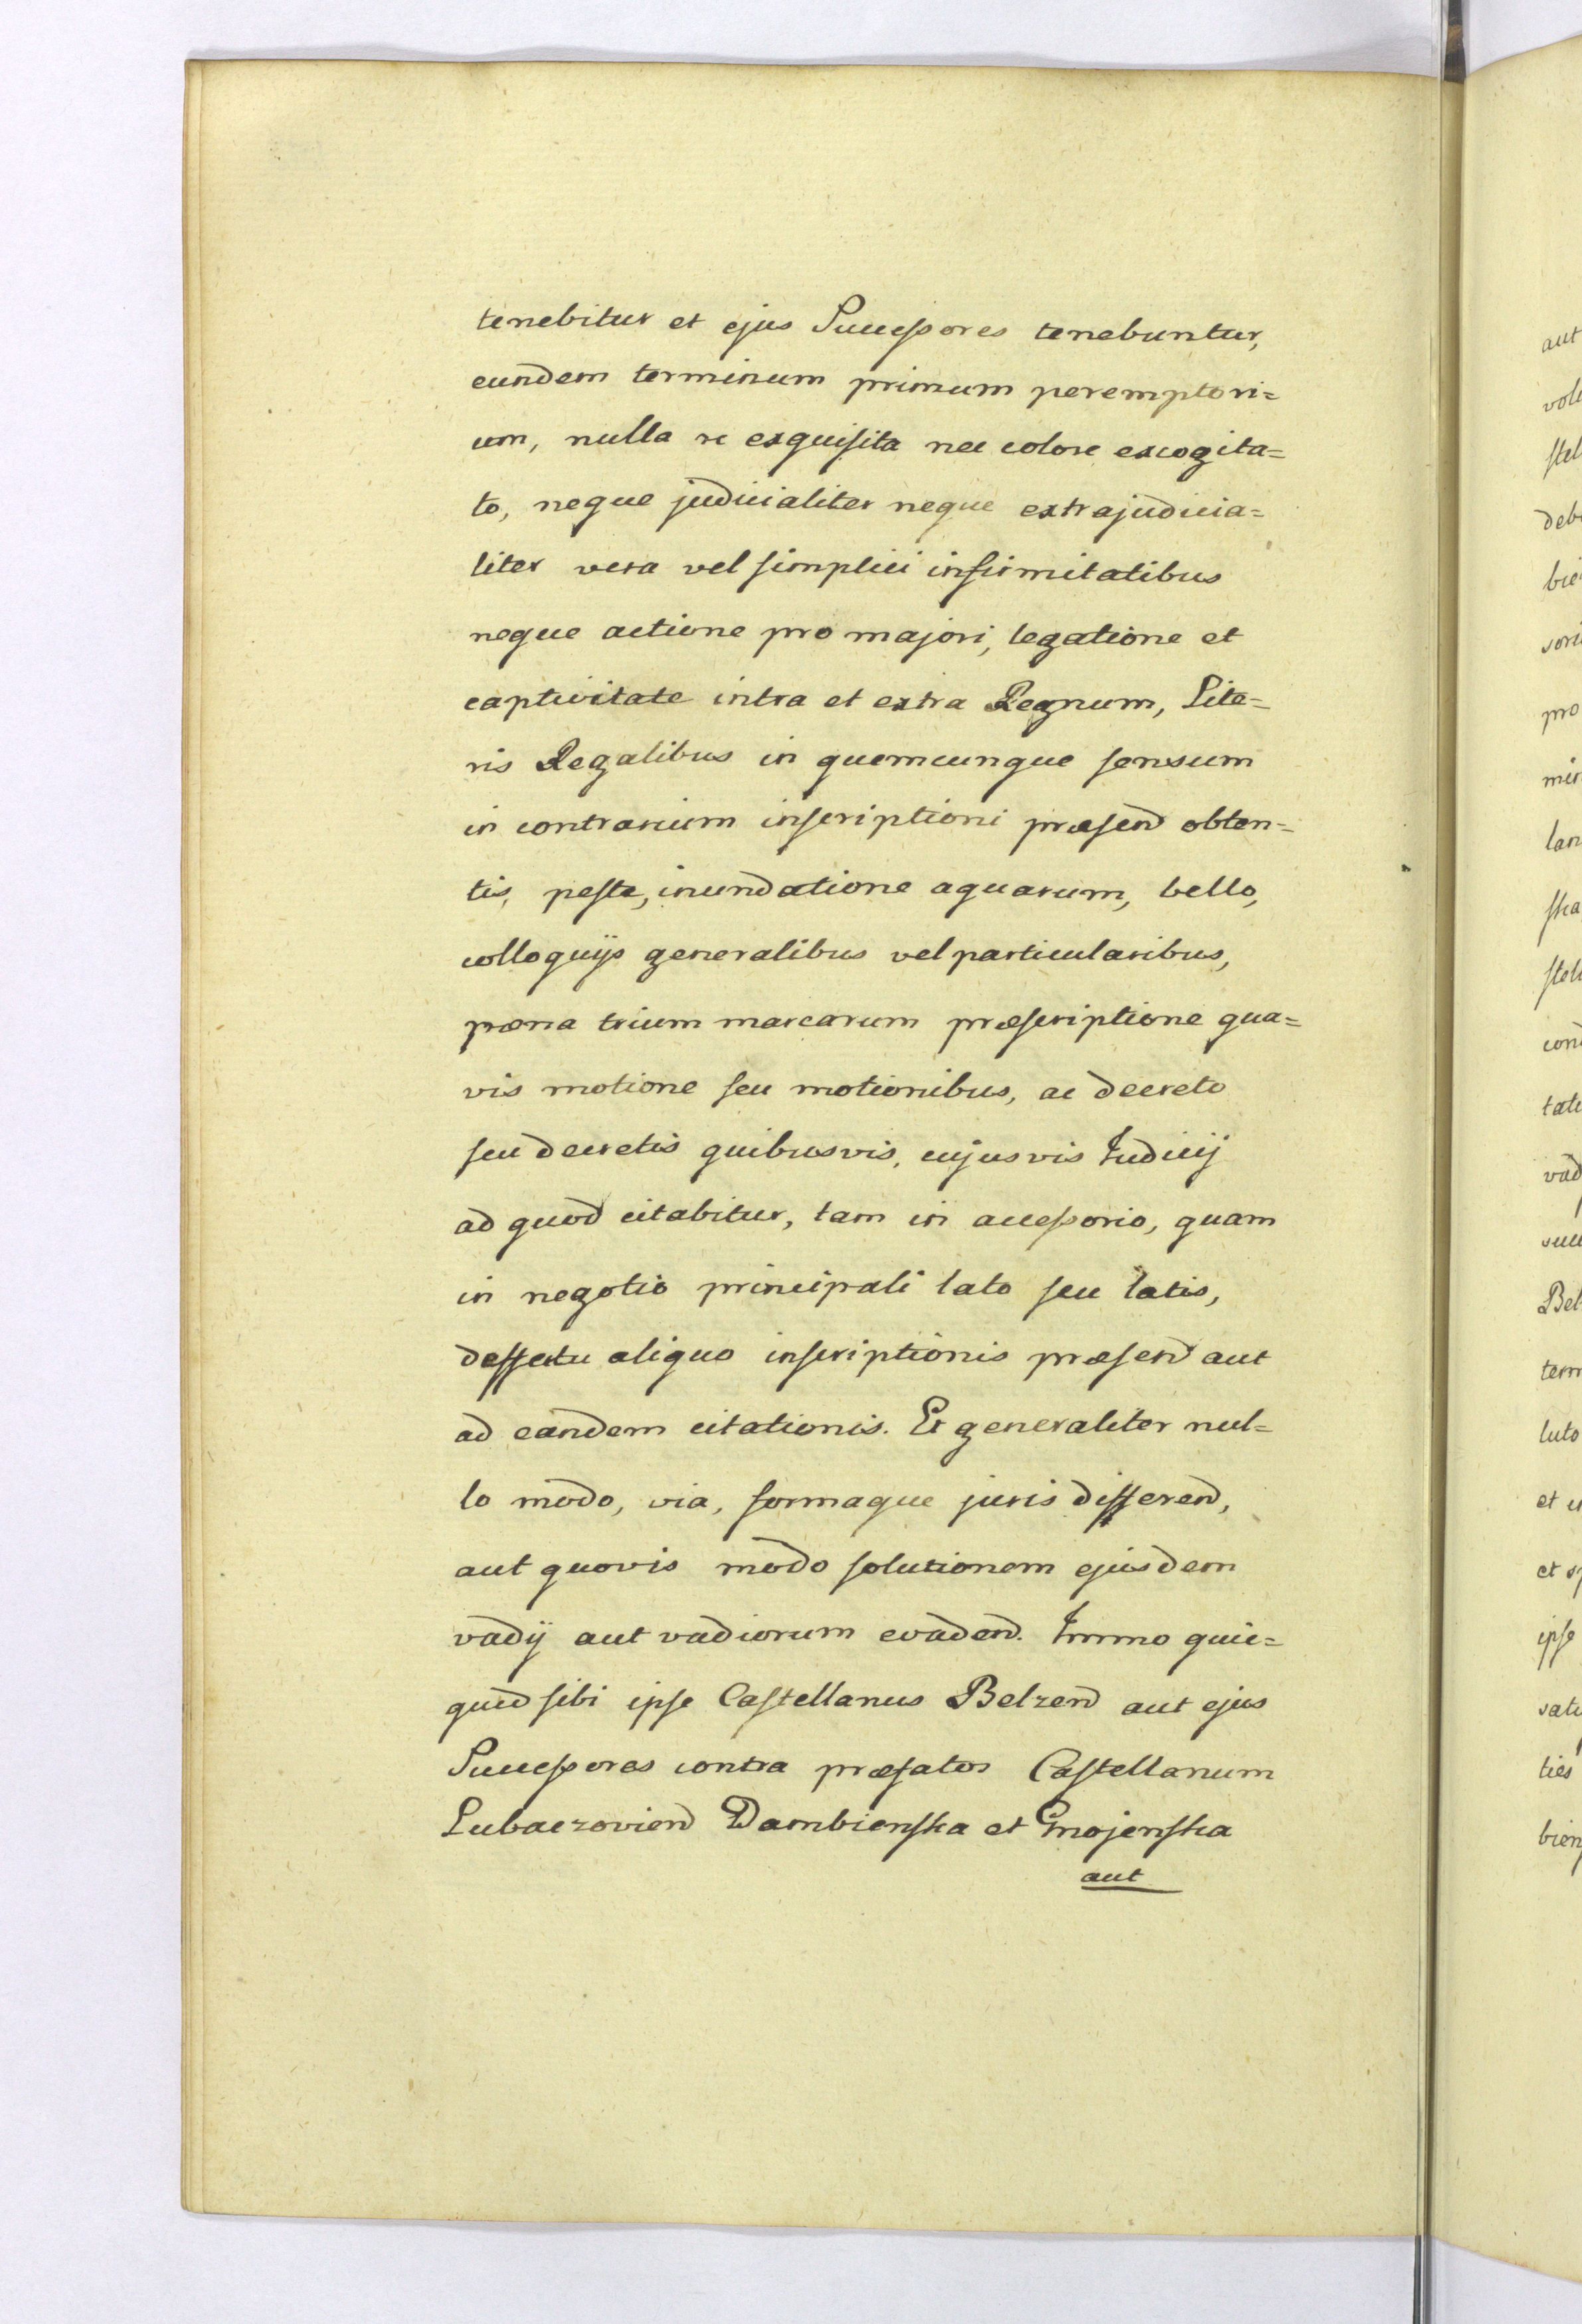 tenebitur et ejus Successores tenebuntur,
eundem terminum primum peremptori=
um, nulla re exquisita nec colore excogita=
to, neque judicialiter neque extrajudicia=
liter vera vel simplici infirmitatibus
neque actione pro majori, legatione et
captivitate intra et extra Regnum, Lite=
ris Regalibus in quemcunque sensum
in contrarium inscriptioni præsend obten=
tis, peste, inundatione aquarum, bello,
colloquijs generalibus vel particularibus,
pæna trium marcarum præscriptione qua=
vis motione seu motionibus, ac decreto
seu decretis quibusvis, cujusvis Judicij
ad quod citabitur, tam in accessorio, quam
in negotio principali lato seu latis,
deffectu aliquo inscriptionis præsend aut
ad eandem citationis. Et generaliter nul=
lo modo, via, formaque juris differend,
aut quovis modo solutionem ejusdem
vadij aut vadiorum evadend. Immo quic=
quid sibi ipse Castellanus Belzend aut ejus
Successores contra præfatos Castellanum
Lubaczoviend Dambienska et Gnojenska
aut
aut
pro
Bel
luto
ipse
ties